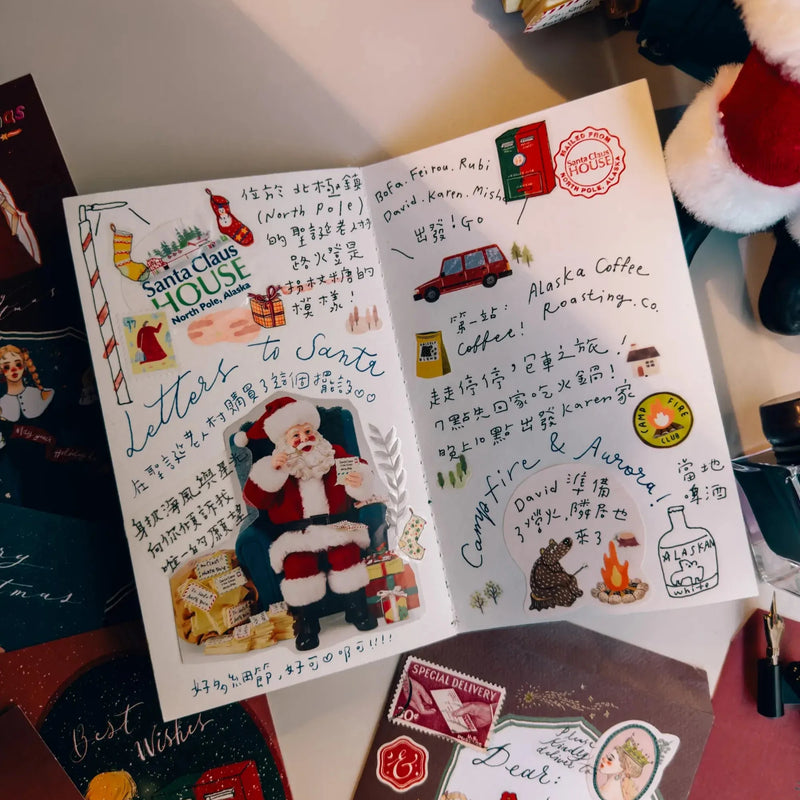 位於 北極鎮
(North Pole)
的聖誕老人村
路火登是
拐杖糖的
模樣！
Santa Claus
HOUSE
North Pole, Alaska
Letters to Santa
在聖誕老人村購買了這個擺設♡♡
身披海風與星光
向你傾訴我
唯一的願望
好多細節，好可♡啊可!!!!
Bofa. Feirou. Rubi
David. Karen. Misha
出發！Go
MAILED FROM
Santa Claus
HOUSE
NORTH POLE, ALASKA
第一站： Alaska Coffee
Coffee! Roasting.co.
走走停停，包車之旅！
7點先回家吃火鍋！
晚上10點出發Karen家
CAMP FIRE
CLUB
Campfire & Aurora!
David 準備
了營火，隣居也
來了
當地
啤酒
ALASKAN
white
SPECIAL DELIVERY
20c
&
Dear:
Please
kindly
deliver to
Best
Wishes